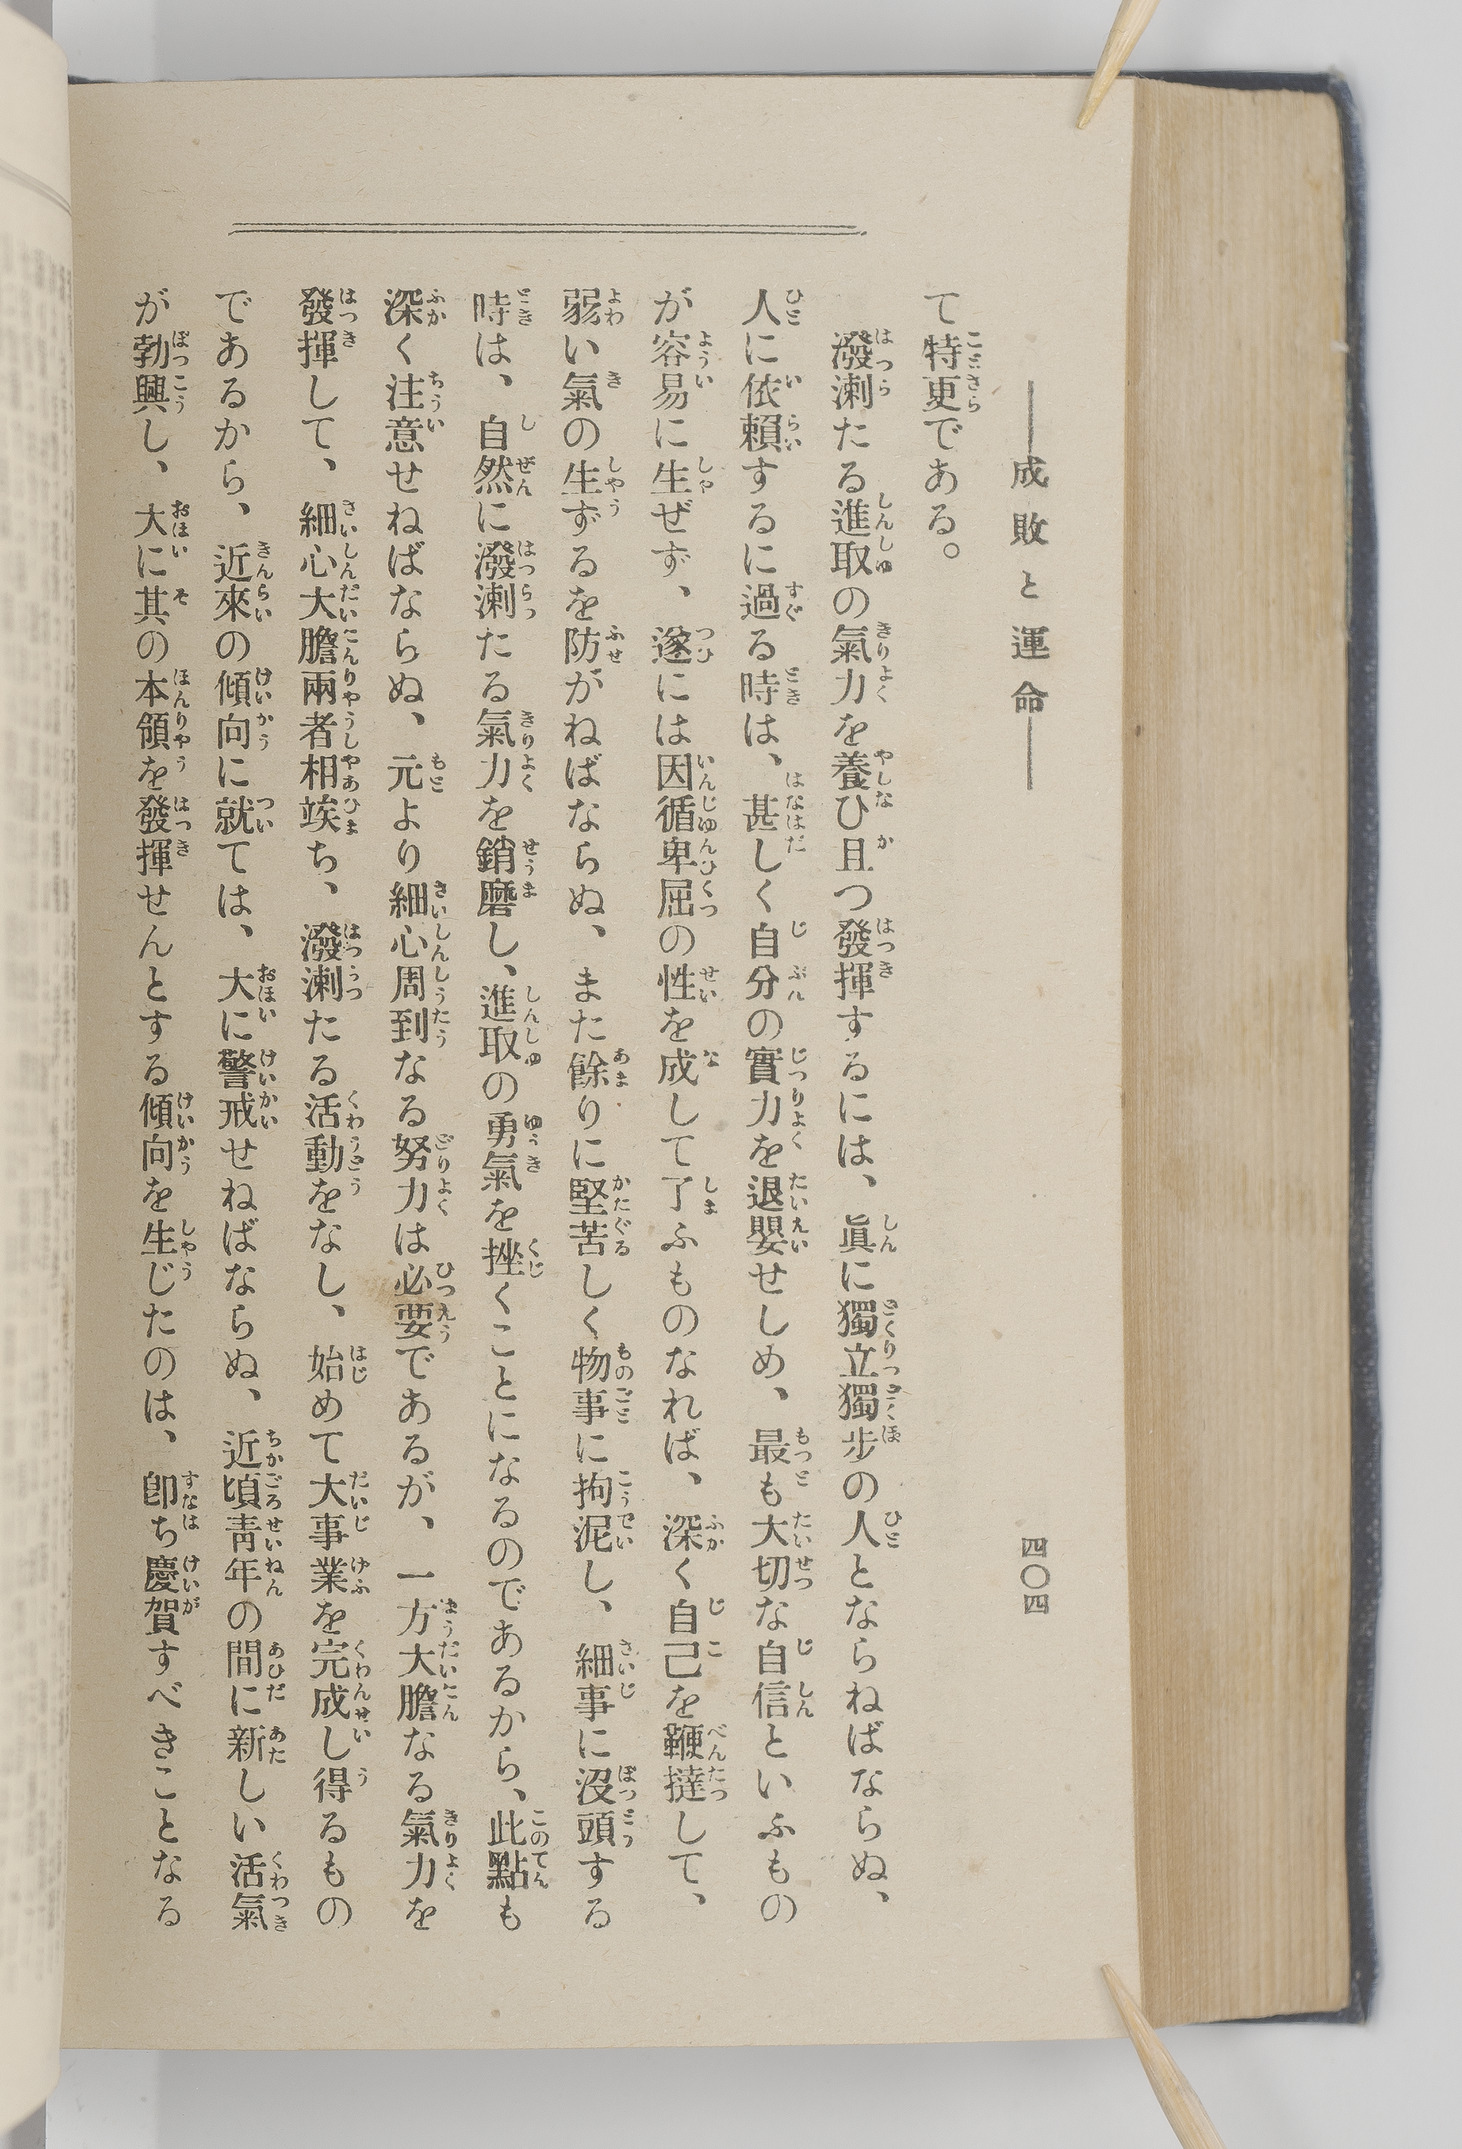 ―成敗と運命―
四〇四
て特更である。
潑溂たる進取の氣力を養ひ且つ發揮するには、眞に獨立獨步の人とならねばならぬ、
人に依賴するに過る時は、甚しく自分の實力を退嬰せしめ、最も大切な自信といふもの
が容易に生ぜず、遂には因循卑屈の性を成して了ふものなれば、深く自己を鞭撻して、
弱い氣の生ずるを防がねばならぬ、また餘りに堅苦しく物事に拘泥し、細事に沒頭する
時は、自然に潑溂たる氣力を銷磨し、進取の勇氣を挫くことになるのであるから、此點も
深く注意せねばならぬ、元より細心周到なる努力は必要であるが、一方大膽なる氣力を
發揮して、細心大膽兩者相竢ち、潑溂たる活動をなし、始めて大事業を完成し得るもの
であるから、近來の傾向に就ては、大に警戒せねばならぬ、近頃靑年の間に新しい活氣
が勃興し、大に其の本領を發揮せんとする傾向を生じたのは、卽ち慶賀すべきことなる